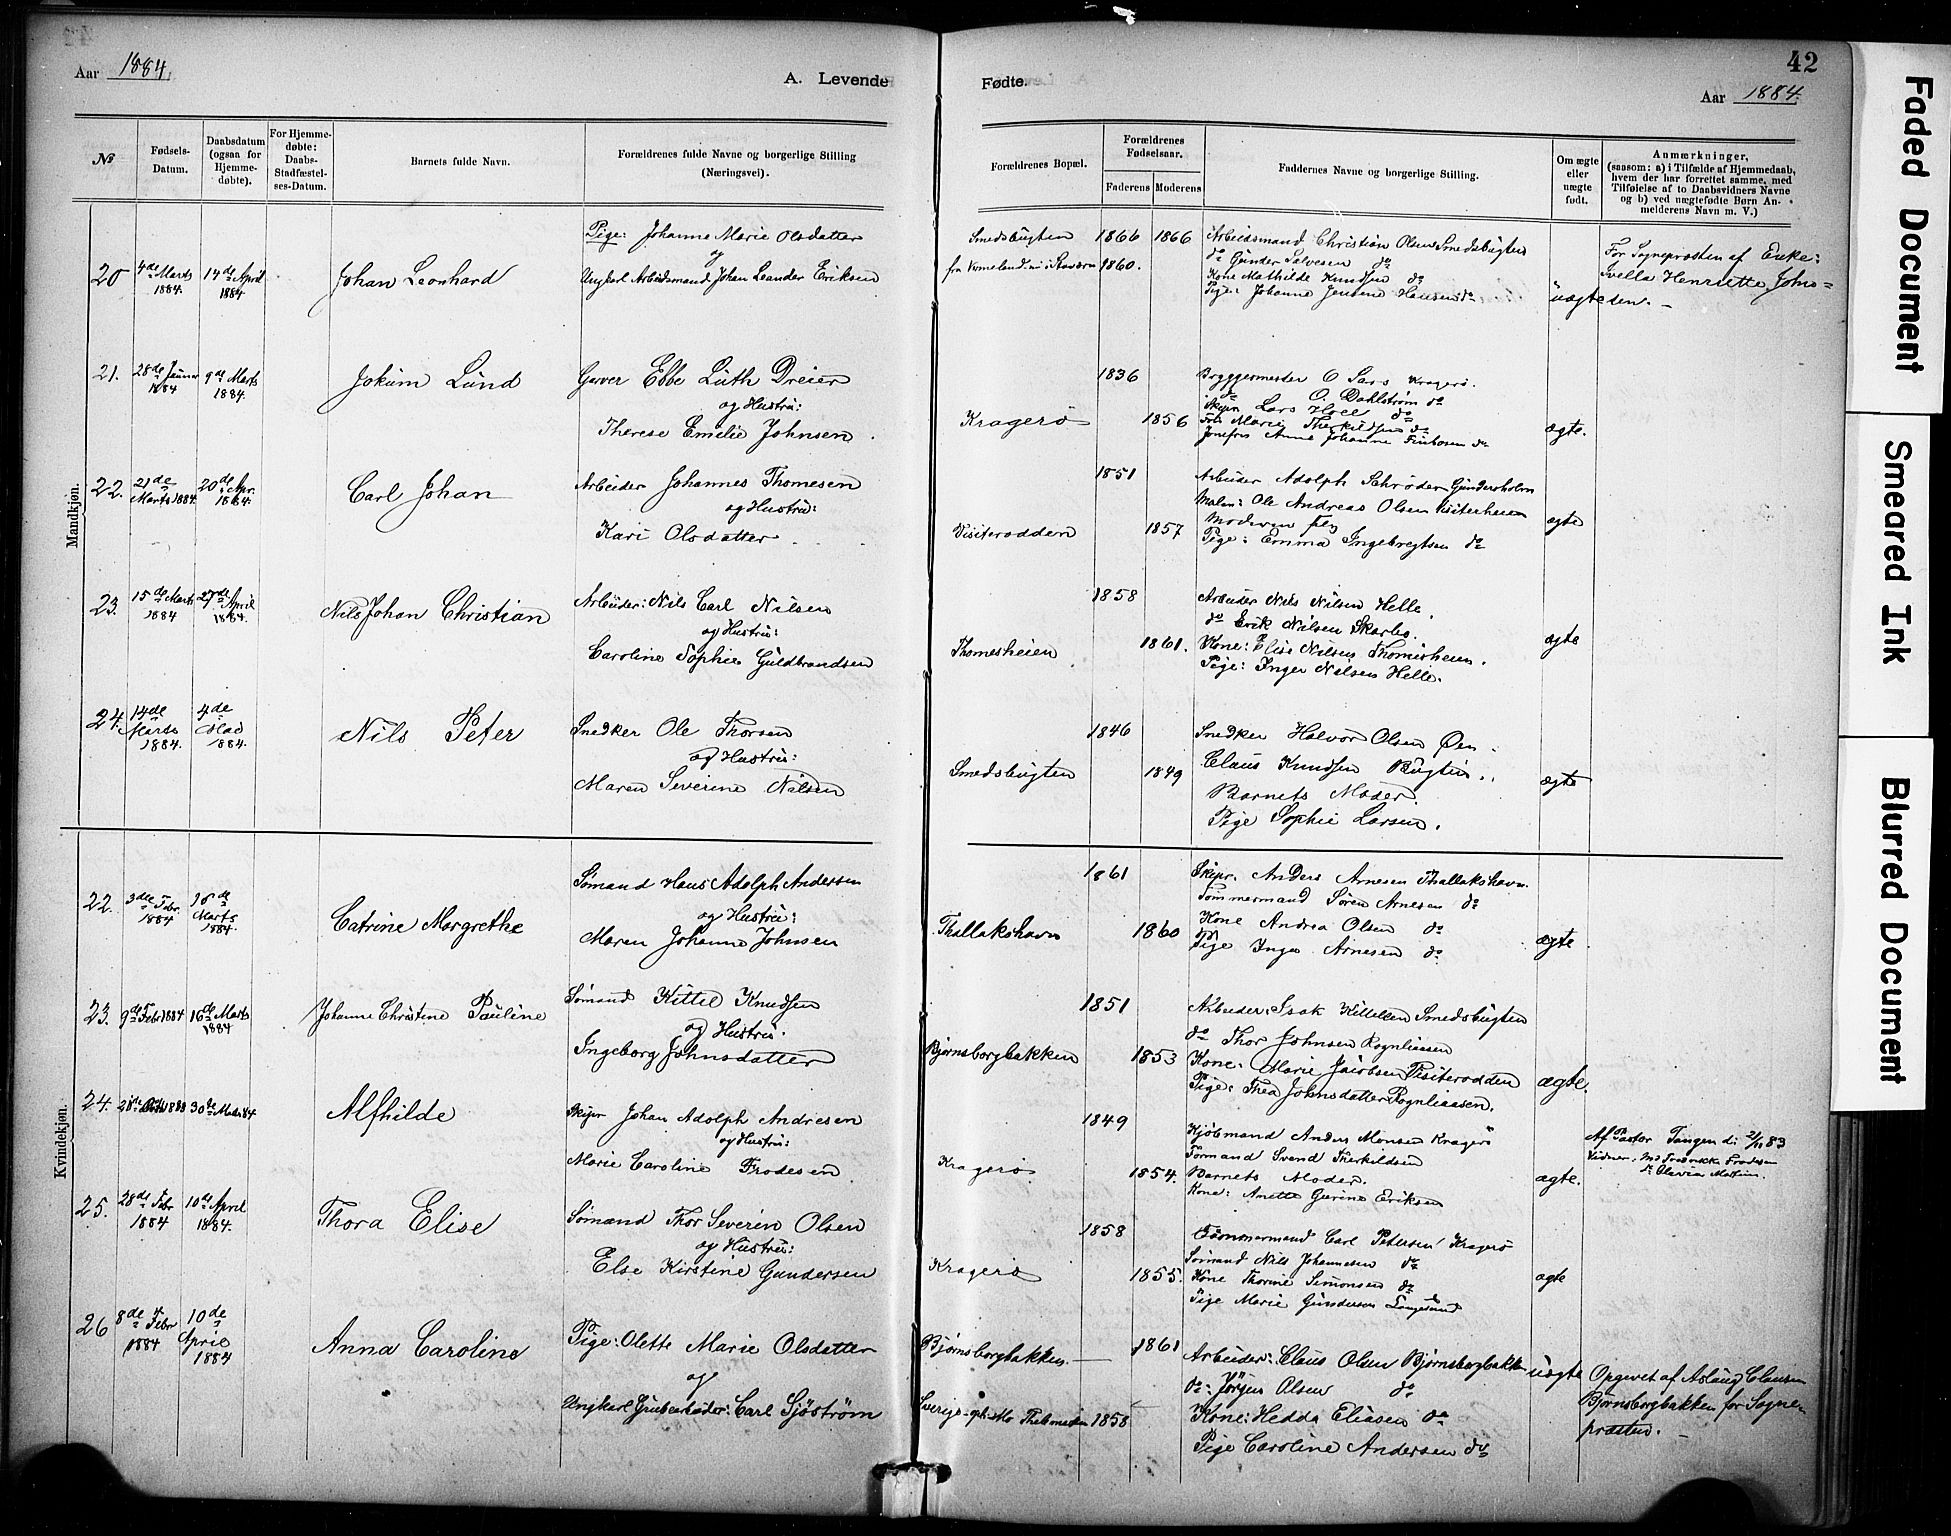 42
Aar 1884.
A. Levende Fødte.
Aar 1884.
№
Fødsels-Datum.
Daabsdatum (ogsaa for Hjemme-døbte).
For Hjemme-døbte: Daabs-Stadfæstel-ses-Datum.
Barnets fulde Navn.
Forældrenes fulde Navne og borgerlige Stilling (Næringsvei).
Forældrenes Bopæl.
Forældrenes Fødselsaar.
Faderens Moderens
Faddernes Navne og borgerlige Stilling.
Om ægte eller uægte født.
Anmærkninger, (saasom: a) i Tilfælde af Hjemmedaab, hvem der har forrettet samme, med Tilføielse af to Daabsvidners Navne og b) ved uægtefødte Børn Anmelderens Navn m. V.)
Mandkjøn.
20 4de Marts 1884. 14de April 1884 Johan Leonhard
Pige: Johanne Marie Olsdatter
og
Ungkarl Arbeidsmand Johan Leander Eriksen
Smedsbugten 1866 1866
1860.
Arbeidsmand Christian Olsen Smedsbugten
do Gunder Salvesen do
Kone Mathilde Knudsen do
Pige: Johanne Jensine Hansen do
uægte
For Sogneprosten af Enke:
Ivella Henriette Johnsen. —
21. 28de Januar 1884 9de Marts 1884. Jokum Lund
Garver Ebbe Luth Dreier
og Hustru:
Therese Emelie Johnsen.
Kragerø 1836 1856
Bryggermester O Sars Kragerø.
do O. Dahlström do
Skipr Lars Hoel do
Frk Marie Therkildsen do
Jomfru Anna Johanne Finbosen do
ægte.
22. 21de Marts 1884. 20de Apr. 1884. Carl Johan
Arbeider Johannes Thomesen
og Hustru:
Kari Olsdatter
Visiterodden 1851 1857
Arbeider Adolph Schrøder Gundersholm
Maler: Ole Andreas Olsen Visiterheien
Moderen selv
Pige: Emma Ingebregtsen do
ægte
23. 15de Marts 1884 27de April 1884. Nils Johan Christian
Arbeider: Nils Carl Nilsen
og Hustru:
Caroline Sophie Guldbrandsen
Thomesheien 1858 1861.
Arbeider Nils Nilsen Helle.
do Erik Nilsen Skarbo.
Kone: Elise Nilsen Thomesheien.
Pige: Inger Nilsen Helle.
ægte
24. 14de Marts 1884. 4de Mad 1884. Nils Peter
Snedker Ole Thorsen
og Hustru:
Maren Severine Nilsen
Smedsbugten 1846 1849
Snedker Halvor Olsen Øen.
Claus Knudsen Bugten.
Barnets Moder.
Pige Sophie Larsen.
ægte
Kvindekjøn.
22. 3die Febr. 1884 Marts 1884. Catrine Margrethe
Sømand Hans Adolph Andersen
og Hustru:
Maren Johanne Johnsen
Thallakshavn 1861 1860
Skipr. Anders Arnesen Thallakshavn.
Tømmermand Søren Arnesen do
Kone Andrea Olsen do
Pige Inga Arnesen do
ægte
23. 9de Febr 1884 16de Marts 1884 Johanne Christine Pauline
Sømand Kittil Knudsen
og Hustru.
Ingeborg Johnsdatter
Bjørnsborgbakken 1851 1853
Arbeider: Isak Kittelsen Smedsbugten
do Thor Johnsen Rognliaasen
Kone: Marie Jacobsen Visiterodden
Pige: Thea Johnsdatter Rognliaasen.
ægte.
24. 1883 30te 84 Alfhilde
Skipr Johan Adolph Andresen
og Hustru:
Marie Caroline Frodesen
Kragerø 1849 1854.
Kjøbmand Anders Monsen Kragerø
Sømand Svend Therkildsen
Barnets Moder.
Kone: Anette Gurine Eriksen
ægte.
Af Pastor Tangen d: 2/11 83
Vidner: Md Fredrikke Frodesen
do Olavia
25. 28de Febr 1884 10de April 1884. Thora Elise
Sømand Thor Severin Olsen
og Hustru:
Else Kirstine Gundersen
Kragerø 1858 1855.
Tømmermand Carl Petersen Kragerø
Sømand Nils Johannesen do
Kone Thorine Simonsen do
Pige Marie Gundersen Langesund
ægte
26 8de Febr 1884 10de April 1884 Anna Caroline
Pige: Olette Marie Olsdatter
og
Ungkarl Grubearbeider: Carl Sjöström
Bjørnsborgbakken. — 1861
Sverige 1858
Arbeider: Claus Olsen Bjørnsborgbakken
do: Jörgen Olsen do
Kone: Hedda Eliasen do
Pige Caroline Andersen do
uægte
Opgivet af Aslaug Clausen
Bjørnsborgbakken for Sogne-
præsten. —
Faded Document
Smeared Ink
Blurred Document